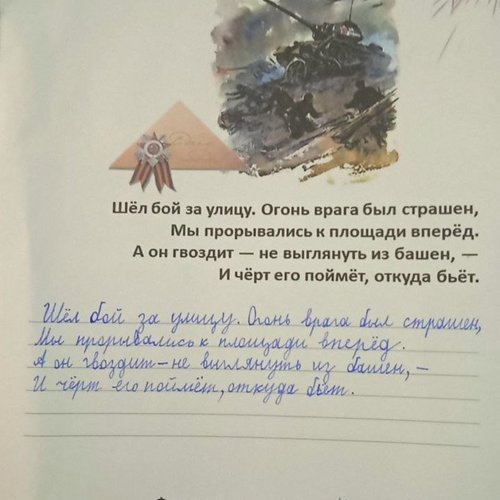 Шёл бой за улицу. Огонь врага был страшен,
Мы прорывались к площади вперёд.
А он гвоздит — не выглянуть из башен, —
И чёрт его поймёт, откуда бьёт.
Шёл бой за улицу. Огонь врага был страшен,
Мы прорывались к площади вперёд.
А он гвоздит – не выглянуть из башен, –
И чёрт его поймёт, откуда бьёт.